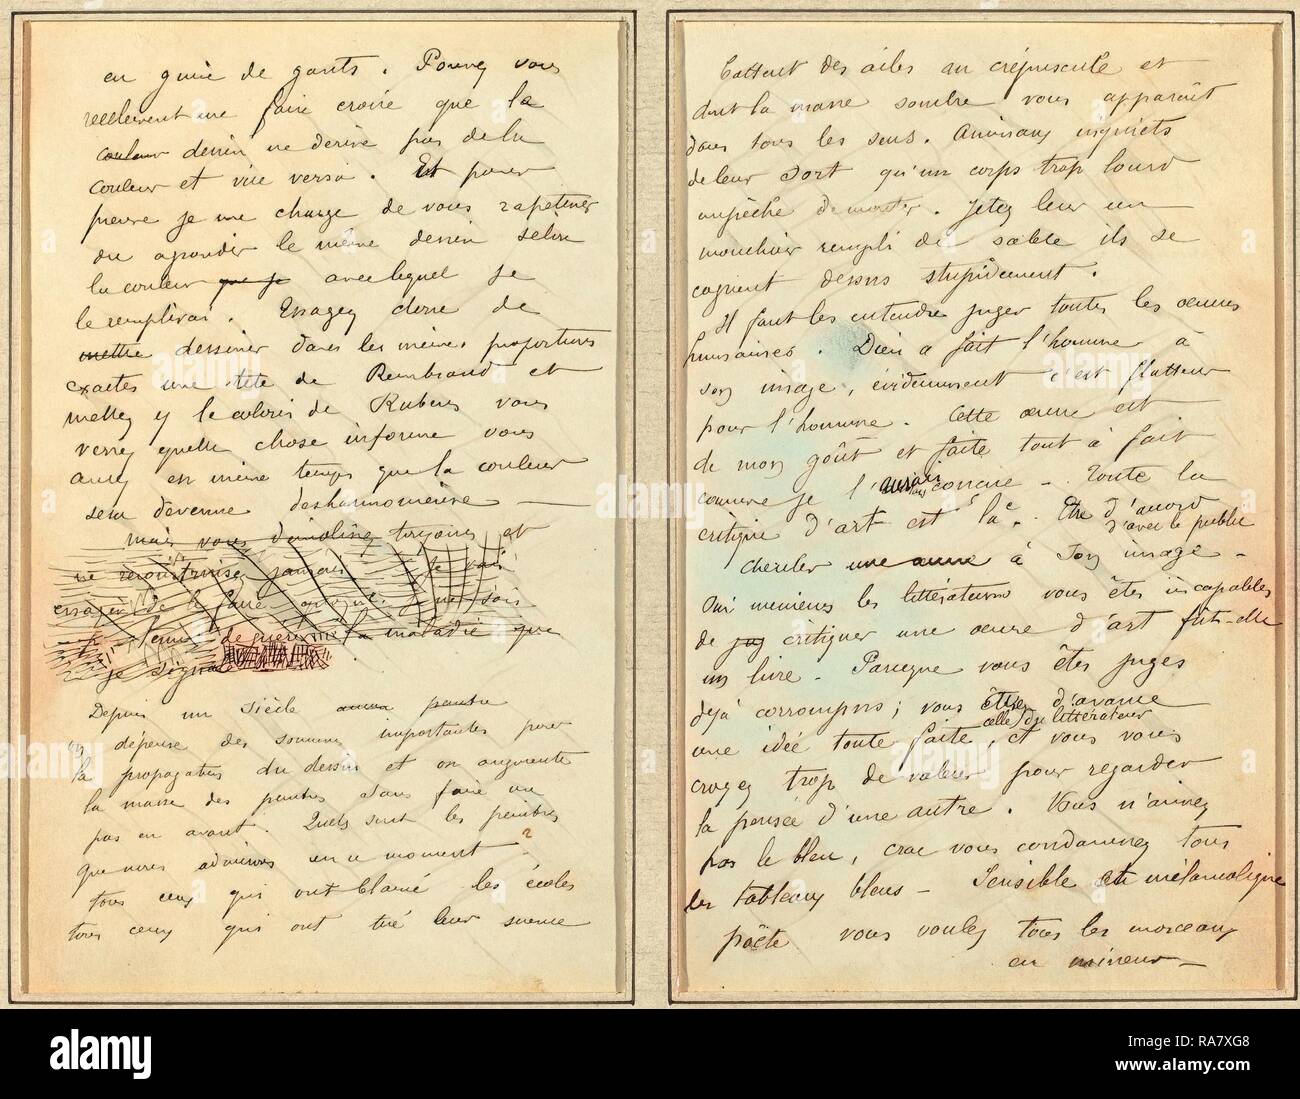 en guise de gants. Pouvez vous
reellement me faire croire que la
couleur dessin ne dérive pas de la
couleur et vice versa. Et pour
preuve je me charge de vous rapetisser
ou agrandir le même dessin selon
la couleur que je avec lequel je
le remplirai. Essayez donc de
mettre dessiner dans les mêmes proportions
exactes une tête de Rembrand et
mettez y le coloris de Rubens vous
verrez quelle chose informe vous
aurez en même temps que la couleur
sera devenue desharmonieuse —
mais vous démolissez toujours et
ne reconstruisez jamais Je vais
essayer de le faire
de guérir la maladie que
je signale
Depuis un siècle aucun peintre
on dépense des sommes importantes pour
la propagation du dessin et on augmente
la masse des peintres sans faire un
pas en avant. Quels sont les peintres
que nous admirons en ce moment ?
tous ceux qui ont blamé les écoles
tous ceux qui ont tiré leur science
battent des ailes au crépuscule et
dont la masse sombre vous apparaît
dans tous les sens. Animaux inquiets
de leur sort qu'un corps trop lourd
empêche de monter. Jetez leur un
mouchoir rempli de sable ils se
cognent dessus stupidement.
Il faut les entendre juger toutes les œuvres
humaines. Dieu a fait l'homme à
son image, évidemment c'est flatteur
pour l'homme. Cette œuvre est
de mon goût et faite tout à fait
comme je l'aurais conçue — Toute la
critique d'art est là. Etre d'accord
d'avec le public
chercher une œuvre à son image —
Oui messieurs les littérateurs vous êtes incapables
de jug critiquer une œuvre d'art fût-elle
un livre — Parceque vous êtes juges
déjà corrompus; vous êtes d'avance
celle du littérateur
une idée toute faite, et vous vous
croyez trop de valeur pour regarder
la pensée d'une autre. Vous n'aimez
pas le bleu, crac vous condamnez tous
les tableaux bleus — Sensible et mélancolique
poëte vous voulez tous les morceaux
en mineur —
alamy
Image ID: RA7XG8
www.alamy.com